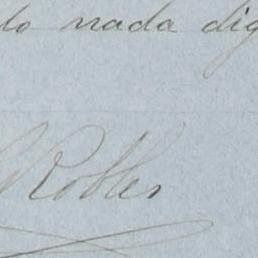 lo nada dig
Robles